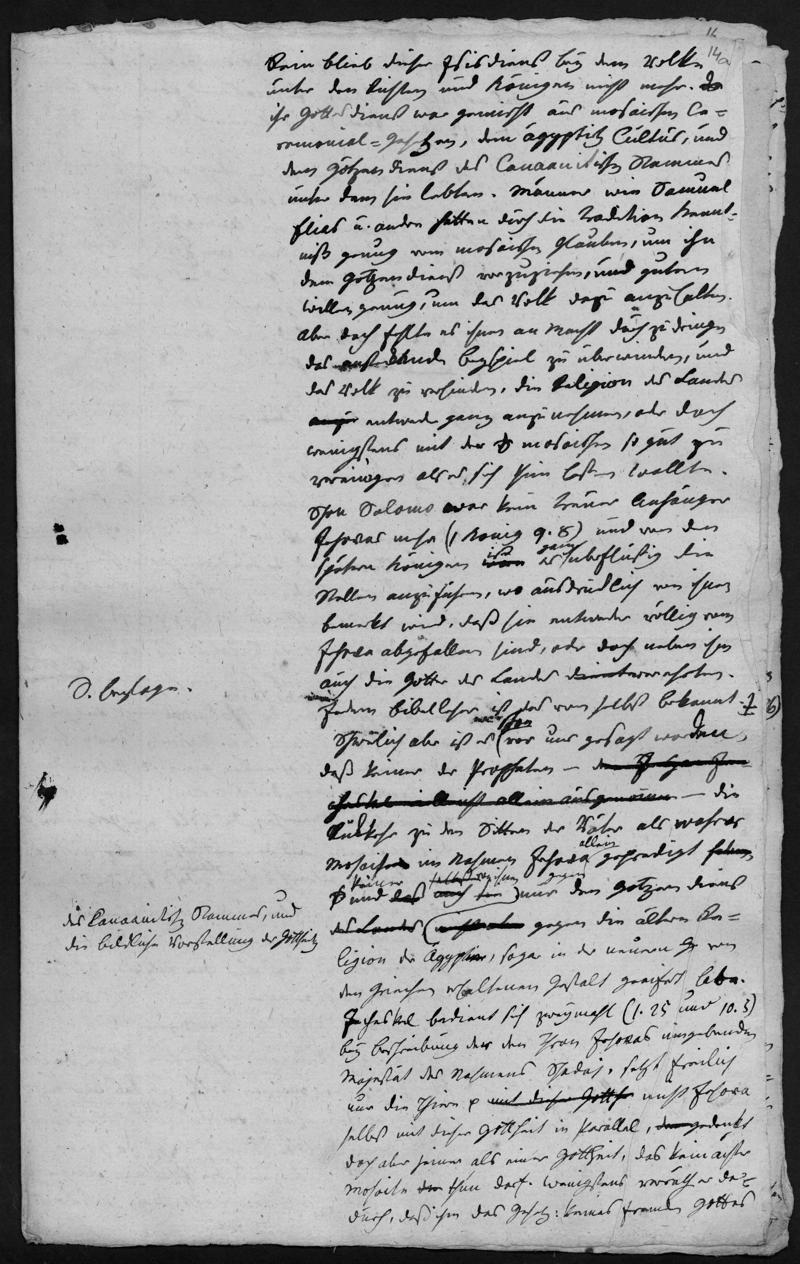 14a
Rein blieb dieser Isisdienst bey dem Volke
unter den Richtern und Königen nicht mehr.
ihr Gottesdienst war gemischt aus mosaischen Ce=
remonial=Gesetzen, dem ägyptisch Cultus, und
dem Götzendienst des Canaanitisch Stammes
unter dem sie lebten. Männer wie Samuel
Elias u. andre hatten durch die Tradition Kennt=
niß genug vom mosaischen Glauben, um ihn
dem Götzendienst vorzuziehen, und guten
Willen genug, um das Volk dazu anzuhalten.
Aber doch fehlte es ihnen an Macht durchzudringen
das Beyspiel zu überwinden, und
das Volk zu verhindern, die Religion des Landes
entweder ganz anzunehmen, oder doch
wenigstens mit der mosaischen so gut zu
vereinigen als es sich thun lassen wollte.
Schon Salomo war kein treuer Anhänger
Jehovas mehr (1 König 9. 8) und von den
spätern Königen ist es ganz überflüßig die
Stellen anzuführen, wo ausdrücklich von ihnen
bemerkt wird, daß sie entweder völlig vom
Jehova abgefallen sind, oder doch neben ihm
auch die Götter des Landes verehrten.
S. Beylage.
Jedem Bibelleser ist das von selbst bekannt.
Schwerlich aber ist es vor uns gesagt worden,
daß keiner der Propheten — — die
Rükkehr zu den Sitten der Väter als wahrer
Mosaisch im Nahmen Jehova allein gepredigt
und keiner gegen den Götzendienst
des Kanaanitisch Stammes, und
die bildliche Vorstellung der Gottheit
gegen die ältere Re=
ligion der Ägyptier, sogar in der neuern von
den Griechen erhaltenen Gestalt geeifert habe.
Jecheskel bedient sich zweymahl (1. 25 und 10. 5)
bey Beschreibung der den Thron Jehovas umgebenden
Majestät des Nahmens Schadai, setzt freilich
nur die Thiere nicht Jehova
selbst mit dieser Gottheit in Parallel, gedenkt
doch aber seiner als einer Gottheit, das kein ächter
Mosaite thun darf. wenigstens verräth er da=
durch, daß ihm das Gesetz: keines fremden Gottes